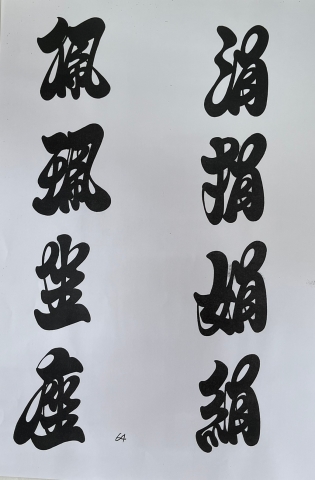 涓
捐
娟
絹
佩
珮
坐
座
64